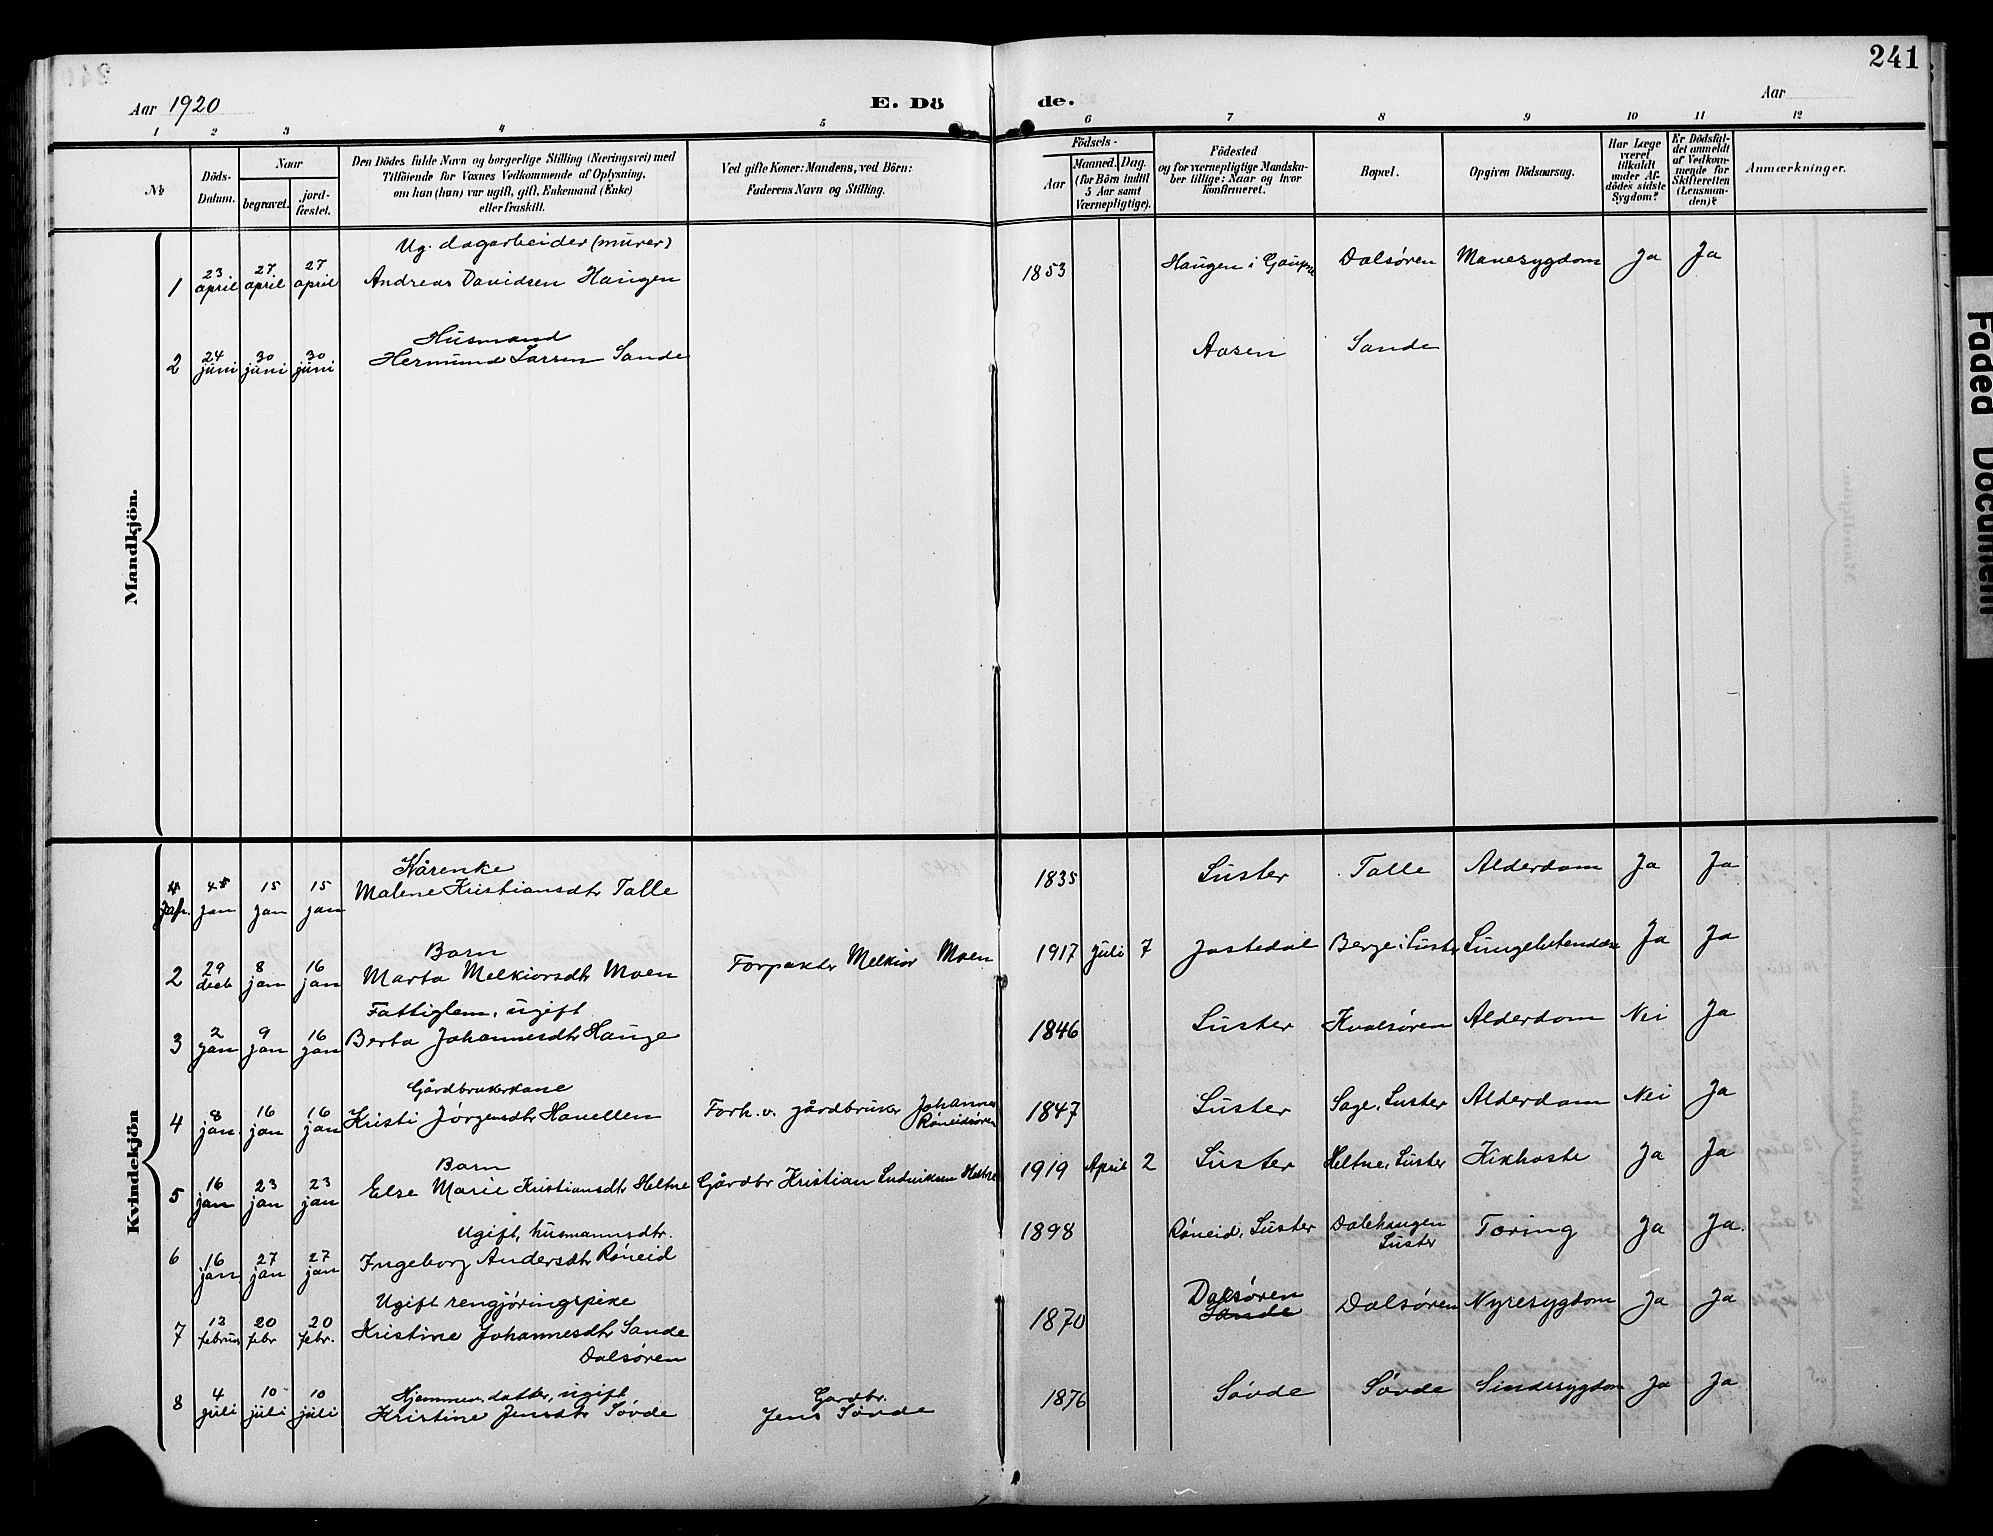 241
Aar 1920
E. Dö
de.
Aar
1 2 3 4 5 6 7 8 9 10 11 12
No
Döds-Datum.
Naar
begravet.
jord-fæstet.
Den Dödes fulde Navn og borgerlige Stilling (Næringsvei) med
Tilföiende for Voxnes Vedkommende af Oplysning,
om han (hun) var ugift, gift, Enkemand (Enke)
eller fraskilt.
Ved gifte Koner: Mandens, ved Börn:
Faderens Navn og Stilling.
Födsels-
Aar
Maaned. Dag.
(for Börn indtil
5 Aar samt
Værnepligtige).
Födested
og for værnepligtige Mandska-
ber tillige: Naar og hvor
konfirmeret.
Bopæl.
Opgiven Dödsaarsag.
Har Læge
været
tilkaldt
under Af-
dödes sidste
Sygdom?
Er Dödsfal-
det anmeldt
af Vedkom-
mende for
Skifteretten
(Lensman-
den)?
Anmærkninger.
Mandkjön.
Ug. dagarbeider (murer)
1 23 april 27 april 27 april Andreas Davidsen Haugen 1853 Haugen i Gaupne Dalsøren Mavesygdom Ja Ja
Husmand
2 24 juni 30 juni 30 juni Hermund Larsen Sande Aasen Sande
Kvindekjön
Kårenke
jan 15 jan 15 jan Malene Kristiansdtr Talle 1835 Luster Talle Alderdom Ja Ja
Barn
2 29 desb 8 jan 16 jan Marta Melkiorsdtr Moen Forpakter Melkior Moen 1917 Juli 7 Jostedal Berge i Luster Lungebetendelse Ja Ja
Fattiglem, ugift
3 2 jan 9 jan 16 jan Berta Johannesdtr Hauge 1846 Luster Kvalsøren Alderdom Nei Ja
Gårdbrukerkone
4 8 jan. 16 jan 16 jan Kristi Jørgensdtr Havellen Forh. v. gårdbruker Johannes Røneidsøren 1847 Luster Sage, Luster Alderdom Nei Ja
Barn
5 16 jan 23 jan 23 jan Else Marie Kristiansdtr Heltne Gårdbr Kristian Ludviksen Heltne 1919 April 2 Luster Heltne, Luster Kikhoste Ja Ja
Ugift, husmannsdtr.
6 16 jan 27 jan 27 jan Ingeborg Andersdtr Røneid 1898 Røneid, Luster Dalehaugen Luster Tæring Ja Ja.
Ugift rengjøringspike
7 13 februar 20 febr 20 febr. Kristine Johannesdtr Sande Dalsøren 1870 Dalsøren Sande Dalsøren Nyresygdom Ja Ja
Hjemmev. datter, ugift
8 4 juli 10 juli 10 juli Kristine Jensdtr Søvde Gardbr. Jens Søvde 1876 Søvde Søvde Sindssygdom Ja Ja
Faded Document